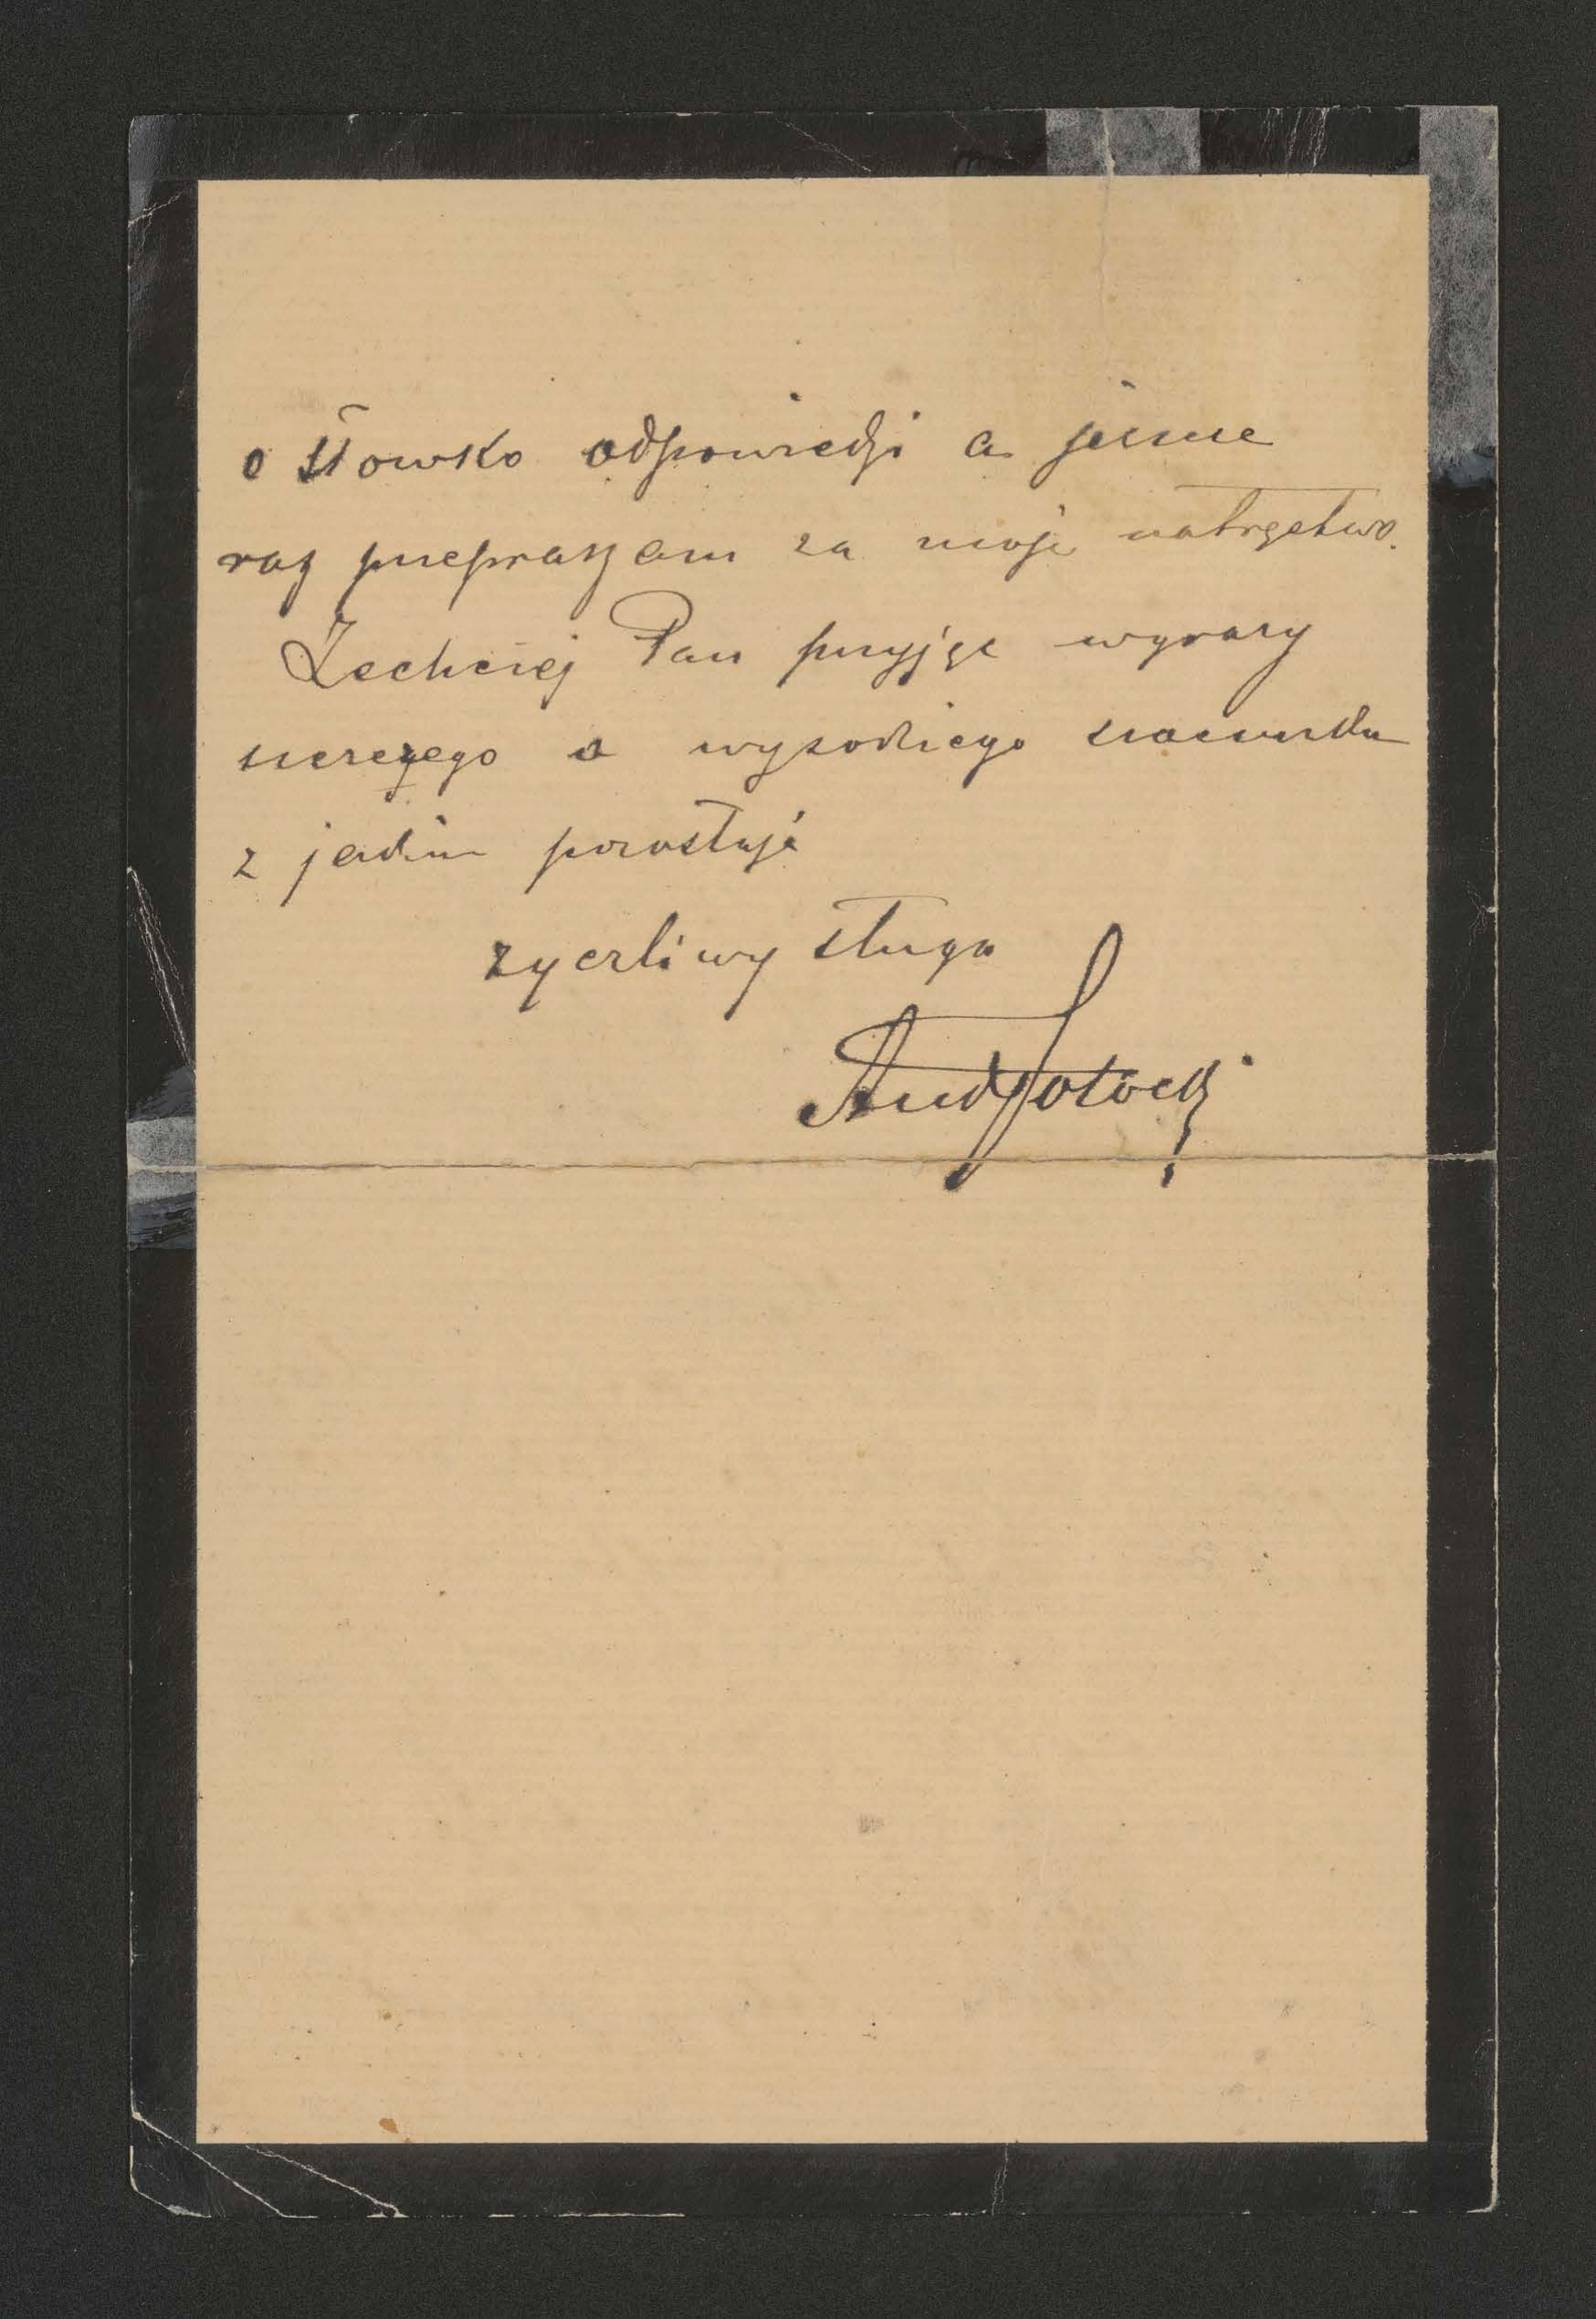 o słówko odpowiedzi a jeszcze
raz przepraszam za moje natręctwo.
Zechciej Pan przyjąć wyrazy
szczerego a wysokiego szacunku
z jakim pozostaję
życzliwy sługa
AndPotocki